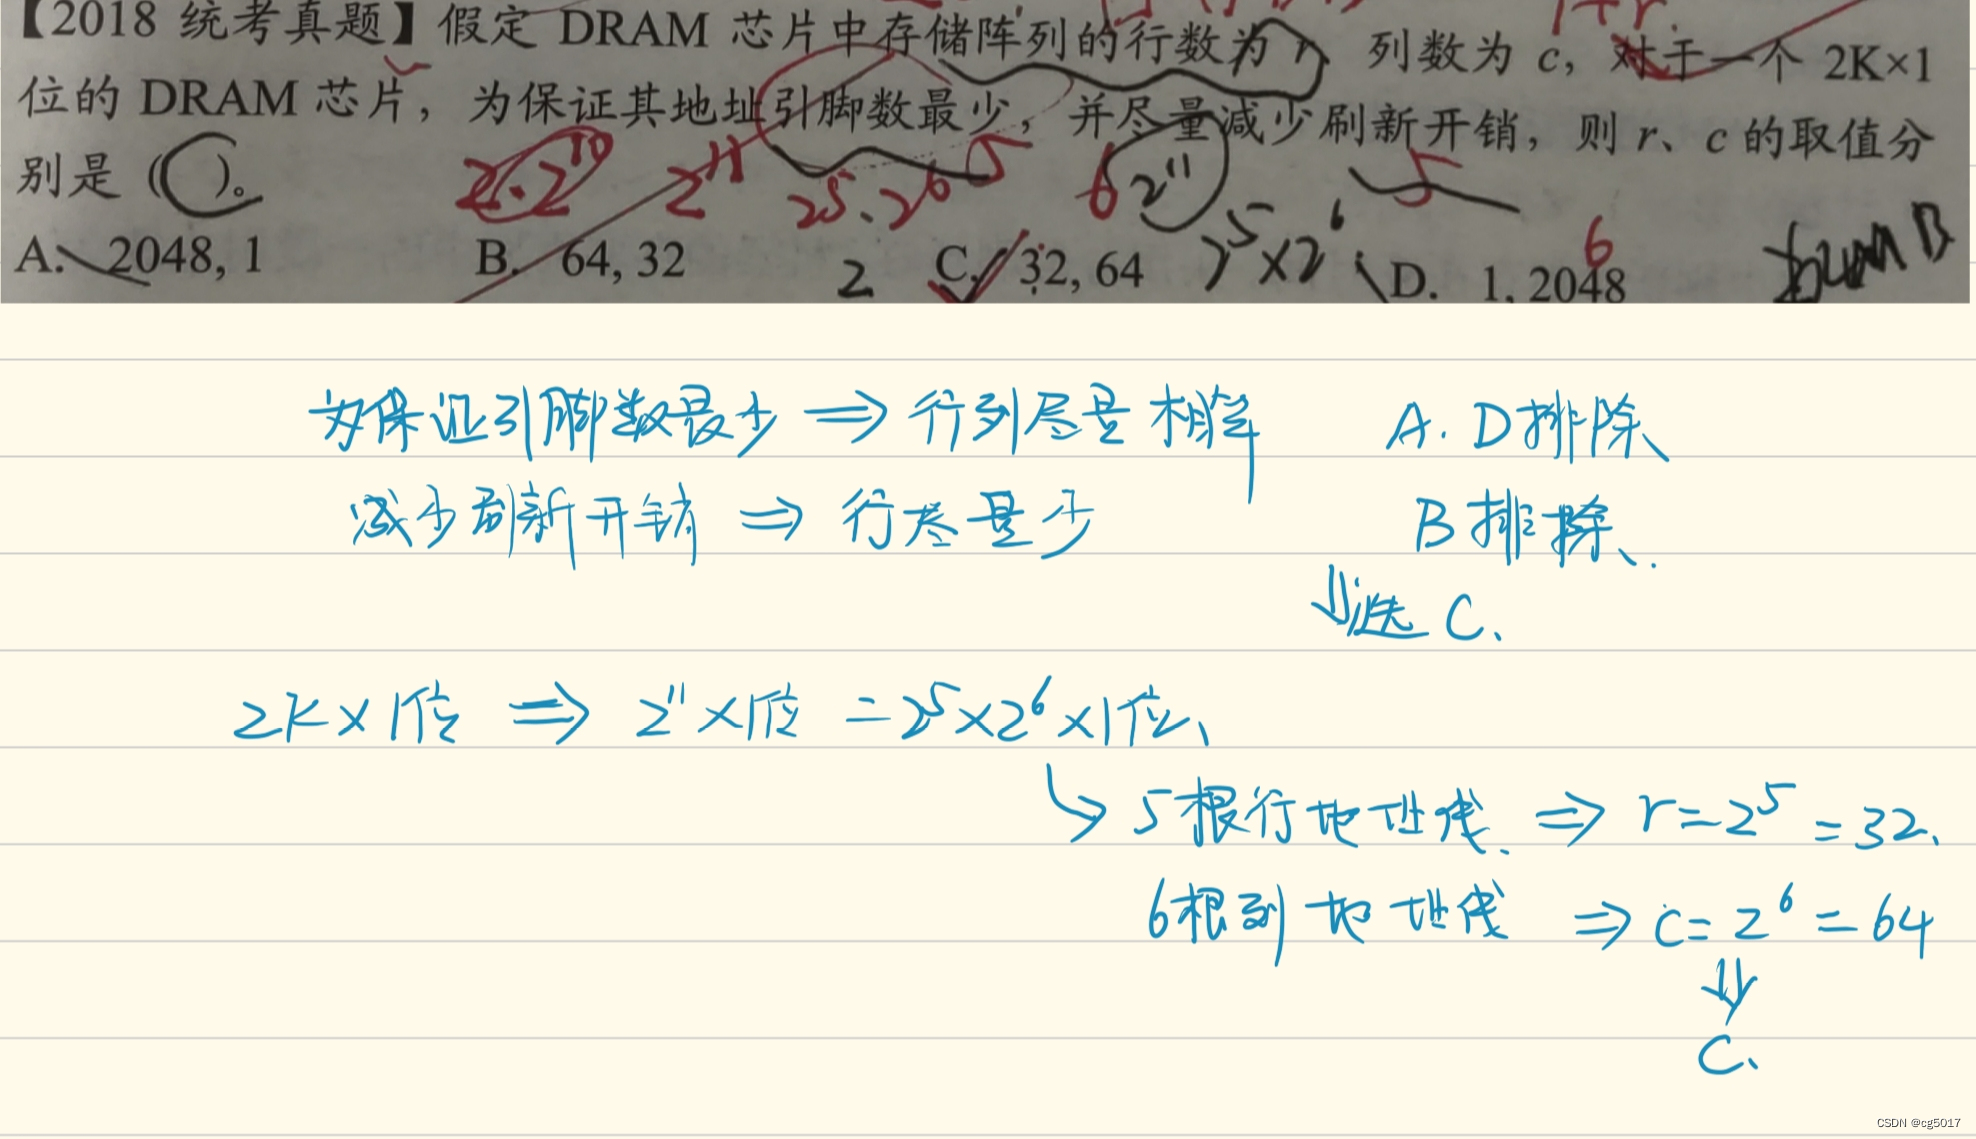 【2018 统考真题】假定 DRAM 芯片中存储阵列的行数为 r、列数为 c，对于一个 2K×1
位的 DRAM 芯片，为保证其地址引脚数最少，并尽量减少刷新开销，则 r、c 的取值分
别是（ ）。
2·2¹⁰ 2¹¹ 2⁵·2⁶ 5 6 2¹¹ 5
A. 2048, 1 B. 64, 32 2 C. 32, 64 2⁵×2⁶ D. 1, 2048 6
为保证引脚数最少 ⇒ 行列尽量相等 A. D排除、
减少刷新开销 ⇒ 行尽量少 B排除、.
⇓选 C、
2K×1位 ⇒ 2¹¹×1位 = 2⁵×2⁶×1位、
↳ 5根行地址线. ⇒ r=2⁵=32、
6根列地址线 ⇒ c=2⁶=64
⇓
C、
CSDN @cg5017